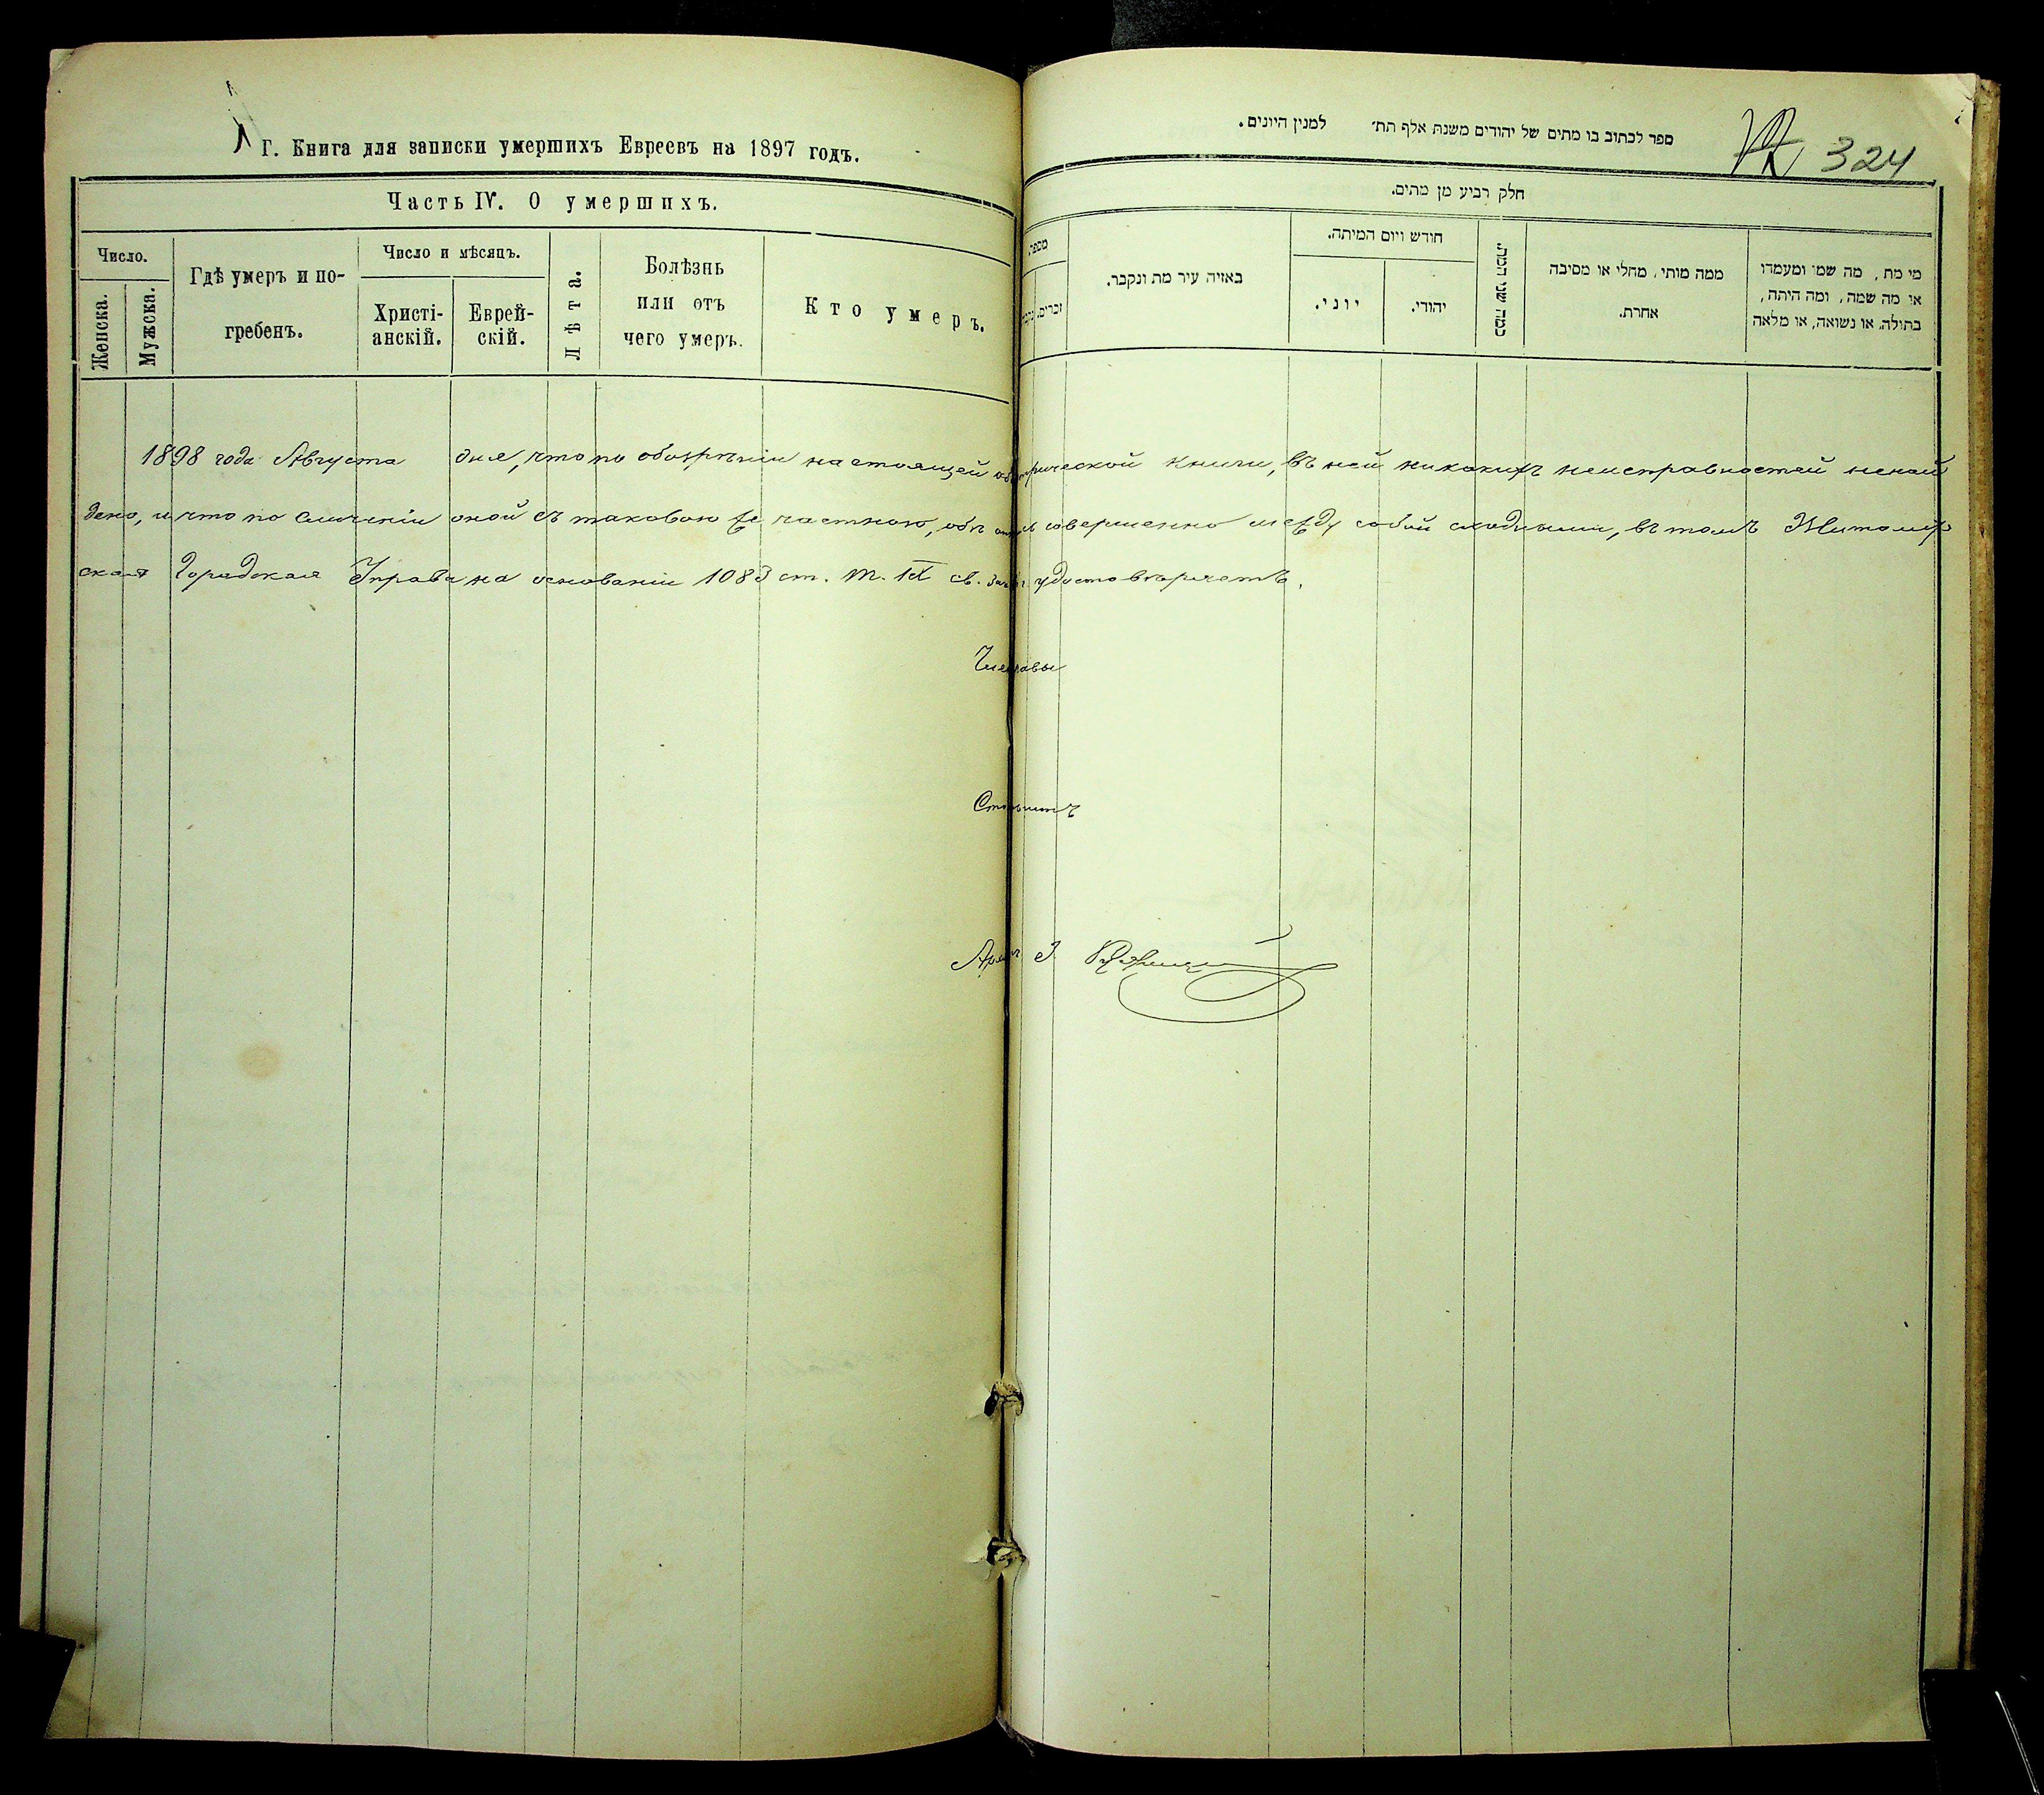 Г. Книга для записки умершихъ Евреевъ на 1897 годъ.
Часть IV. О умершихъ.
Число.
Женска.
Мужска.
Гдѣ умеръ и по-
гребенъ.
Число и мѣсяцъ.
Христі-
анскій.
Еврей-
скій.
Лѣта.
Болѣзнь
или отъ
чего умеръ.
Кто умеръ.
ספר לכתוב בו מתים של יהודים משנת אלף תת׳ למנין היונים.
324
חלק רביע מן מתים.
מספר
זכרים.
באיזה עיר מת ונקבר.
חודש ויום המיתה.
יוני.
יהודי.
כמה שני
ממה מותי, מחלי או מסיבה
אחרת.
מי מת, מה שמו ומעמדו
או מה שמה, ומה היתה,
בתולה, או נשואה, או מלאה
1898 года Августа дня, что по обозрѣніи настоящей книги, въ ней никакихъ неисправностей ненай
дено, и что по сличеніи оной съ таковою же частною, обѣ совершенно между собой сходными, въ томъ Житомир
ская Городская Управа на основаніи 1083 ст. т. IX св. зак. удостовѣряетъ.